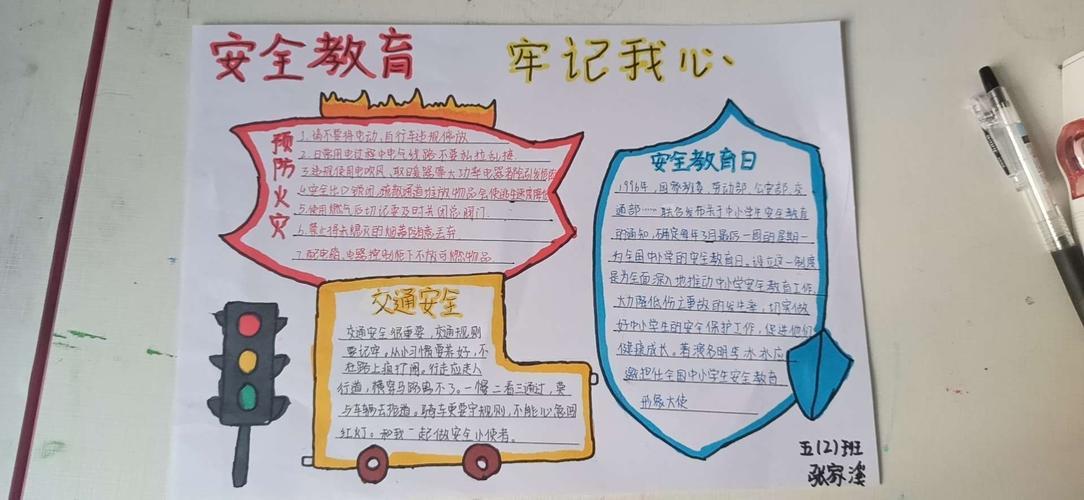 安全教育 牢记我心
预防火灾
1.请不要将电动、自行车违规停放
2.日常用电过程中电气线路不要私拉乱接.
3.违规使用电吹风、取暖器等大功率电器
4.安全出口锁闭,疏散通道堆放物品会使逃生速度降低
5.使用燃气后切记要及时关闭总阀门.
6.禁止将未熄灭的烟蒂随意丢弃
7.配电箱、电器控制柜下不放可燃物品
交通安全
交通安全很重要,交通规则
要记牢。从小习惯要养好,不
在路上疯打闹。行走应走人
行道,横穿马路离不了。一慢二看三通过,莫
与车辆去抢道。骑车更要守规则,不能心急闯
红灯。和我一起做安全小使者。
安全教育日
1996年,国家教委、劳动部、公安部、交
通部……联合发布关于中小学生安全教育
的通知,确定每年3月最后一周的星期一
为全国中小学的安全教育日。设立这一制度
是为全面深入地推动中小学安全教育工作,
大力降低伤亡事故的发生率,切实做
好中小学生的安全保护工作,促进他们
健康成长。着演名明李冰冰应
邀担任全国中小学生安全教育
形象大使
五(2)班
张家溪